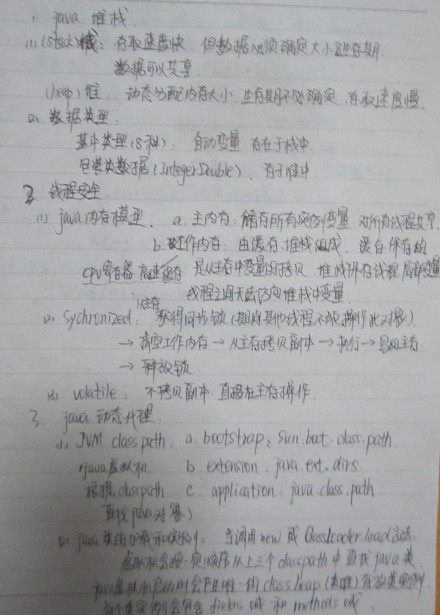 1. java 堆栈.
(1) (stack)栈: 存取速度快, 但数据必须确定大小与生存期.
数据可以共享.
(heap)堆: 动态分配内存大小, 生存期不必确定, 存取速度慢.
(2) 数据类型.
基本类型(8种). 自动变量 存在于栈中.
包装类数据(Integer Double). 存于堆中
2. 线程安全
(1) java内存模型. a. 主内存: 储存所有实例变量 对所有线程共享.
b. 工作内存: 由缓存、堆栈组成. 缓存保存的
CPU寄存器 高速缓存 是从主存中变量的拷贝 堆栈保存线程局部变量
线程之间无法访问堆栈中变量.
(2) Sychronized: 获得同步锁(期间其他线程不能操作此对象).
→ 清空工作内存 → 从主存拷贝副本 → 执行 → 写回主存
→ 释放锁
(3) volatile: 不拷贝副本. 直接在主存操作.
3. java 动态代理.
(1) JVM classpath: a. bootstrap: sun.boot.class.path
java虚拟机 b. extension: java.ext.dirs
根据classpath c. application: java.class.path
查找java对象)
(2) java 类的加载和实例: 当调用new 或 ClassLoader.load方法
虚拟机会按一定顺序从上三个classpath中查找java类.
java虚拟机启动时会产生唯一的class heap (类堆) 存放类实例.
每个类实例会包含 fields 域 和 methods 域